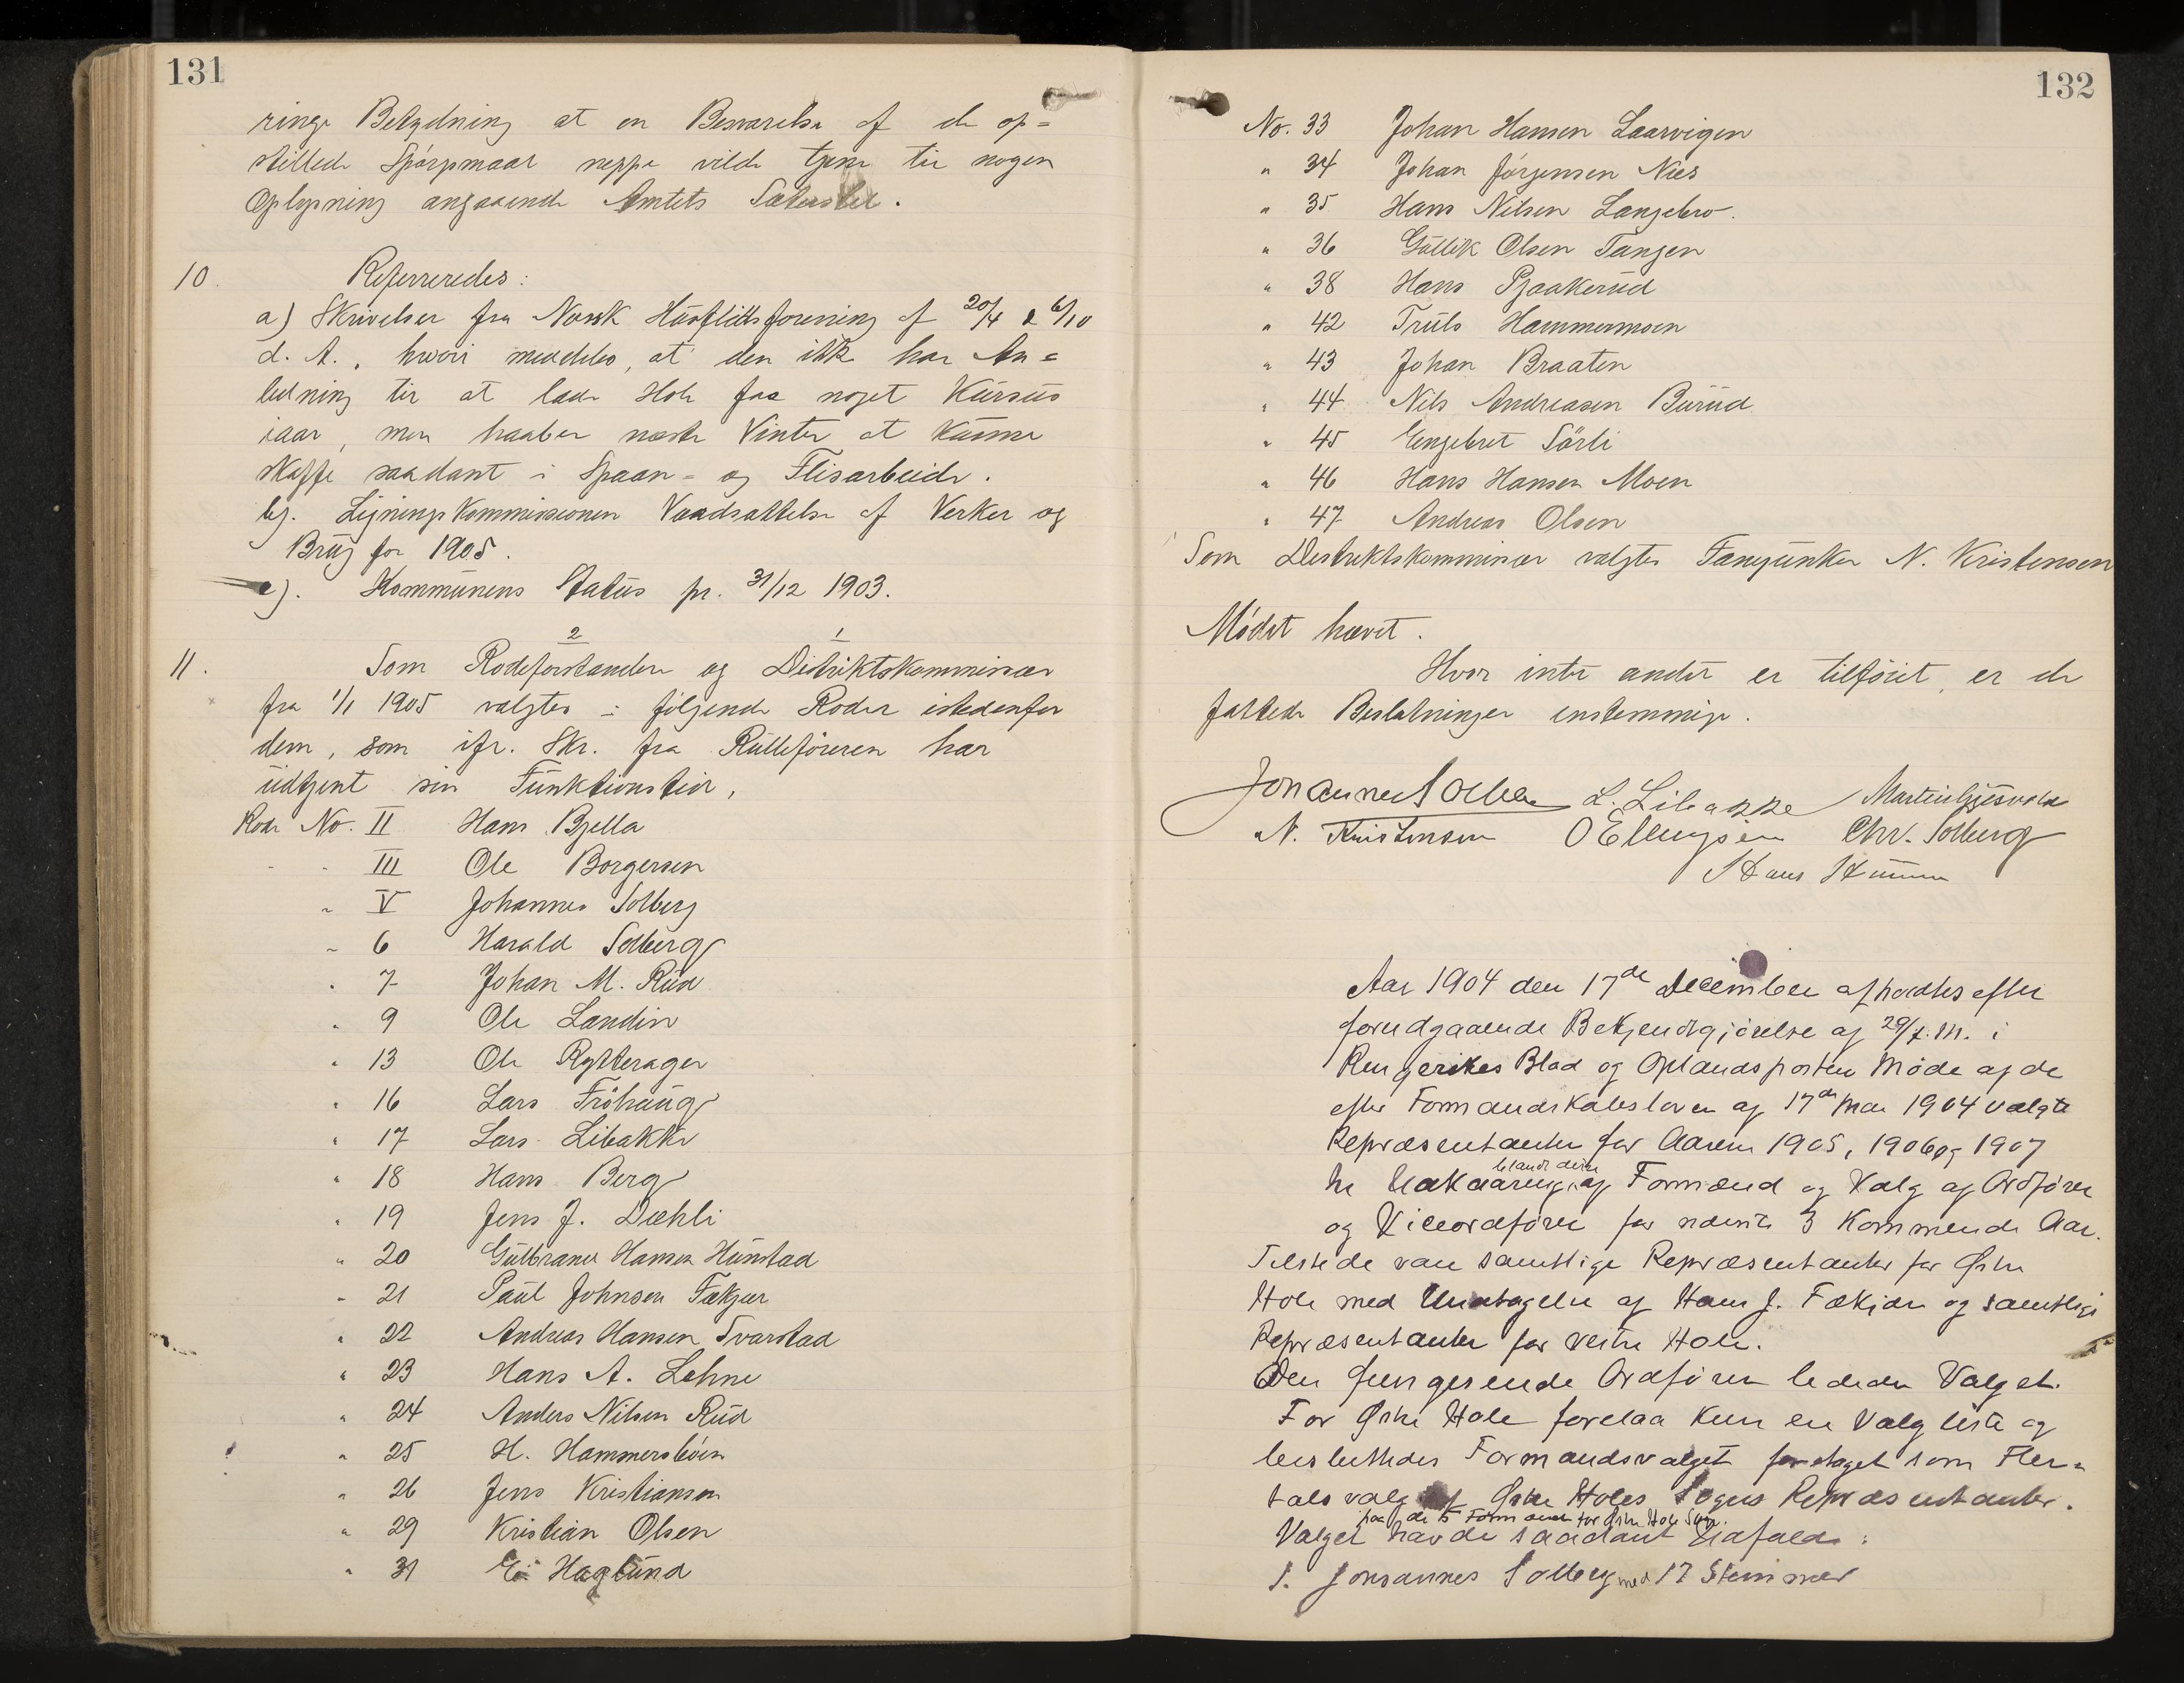 131
ringe Betydning at en Besvarelse af de op=
stillede Spørgsmaal neppe vilde tjene til nogen
Oplysning angaaende Amtets Sæterstel.
10. Refereredes:
a) Skrivelser fra Norsk Husflidsforening af 20/4 & 6/10
d. A., hvori meddeles, at den ikke har An=
ledning til at lade Hole faa noget Kursus
iaar, men haaber næste Vinter at kunne
skaffe saadant i Spaan- og Flisarbeide.
b). Ligningskommissionens Værdsættelse af Verker og
Brug for 1905.
c). Kommunens Status pr. 31/12 1903.
2 1
11. Som Rodeforstandere og Distriktskommissær
fra 1/1 1905 valgtes i følgende Roder istedenfor
dem, som ifr. Skr. fra Rulleføreren har
udtjent sin Funktionstid,
Rode No. II Hans Bjella
- - III Ole Borgersen
" V Johannes Solberg
" 6 Harald Solberg
" 7 Johan M. Rud
" 9 Ole Landin
" 13 Ole Rytterager
" 16 Lars Frøhaug
" 17 Lars Libakke
" 18 Hans Berg
" 19 Jens J. Dæhli
" 20 Gulbrand Hansen Hunstad
" 21 Paul Johnsen Fækjær
" 22 Andreas Hansen Svarstad
" 23 Hans A. Lehne
" 24 Anders Nilsen Rud
" 25 H. Hammersbøen
" 26 Jens Kristiansen
" 29 Kristian Olsen
" 31 E. Haglund
132
No. 33 Johan Hansen Laarvigen
" 34 Johan Jørgensen Næs
" 35 Hans Nilsen Langebro.
" 36 Gullik Olsen Tangen
" 38 Hans Bjaakerud
" 42 Truls Hammermoen
" 43 Johan Braaten
" 44 Nils Andreasen Burud
" 45 Engebret Sørli
" 46 Hans Hansen Moen
" 47 Andreas Olsen
Som Distriktskommissær valgtes Fanejunker N. Kristensen
Mødet hævet.
Hvor intet andet er tilføiet, er de
fattede Beslutninger enstemmige.
Johannes Solberg L. Libakke Martin Gjesvold
N. Kristensen O Ellingsen Chr. Solberg
Hans
Aar 1904 den 17de December afholdtes efter
forudgaaende Bekjendtgjørelse af 29/f. M. i
Ringerikes Blad og Oplandsposten Møde af de
efter Formandskabsloven af 17de Mai 1904 valgte
Repræsentanter for Aarene 1905, 1906 og 1907
blandt disse
til Udkaaring af Formænd og Valg af Ordfører
og Viceordfører for næste 3 kommende Aar.
Tilstede var samtlige Repræsentanter for Østre
Hole med Undtagelse af Hans J. Fækjær og samtlige
Repræsentanter for vestre Hole.
Den fungerende Ordfører ledede Valget.
For Østre Hole forelaa kun en Valgliste og
besluttedes Formandsvalget foretaget som Fler=
talsvalg af Østre Holes Sogns Repræsentanter.
paa de 5 Formænd for Østre Hole Sogn.
Valget havde saadant Udfald:
1. Johannes Solberg med 17 Stemmer